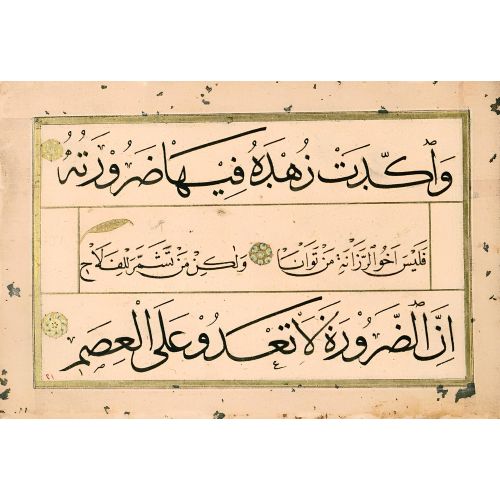 وَاَكَّدَتْ زُهْدَهُ فِيهَا ضَرُورَتُهُ
فَلَيْسَ اَخُو الرَّزَانَةِ مَنْ تَوَانَا وَلٰكِنْ مَنْ تَشَمَّرَ لِلْفَلَاحِ
اِنَّ الضَّرُورَةَ لَا تَعْدُو عَلَى الْعِصَمِ
٢١